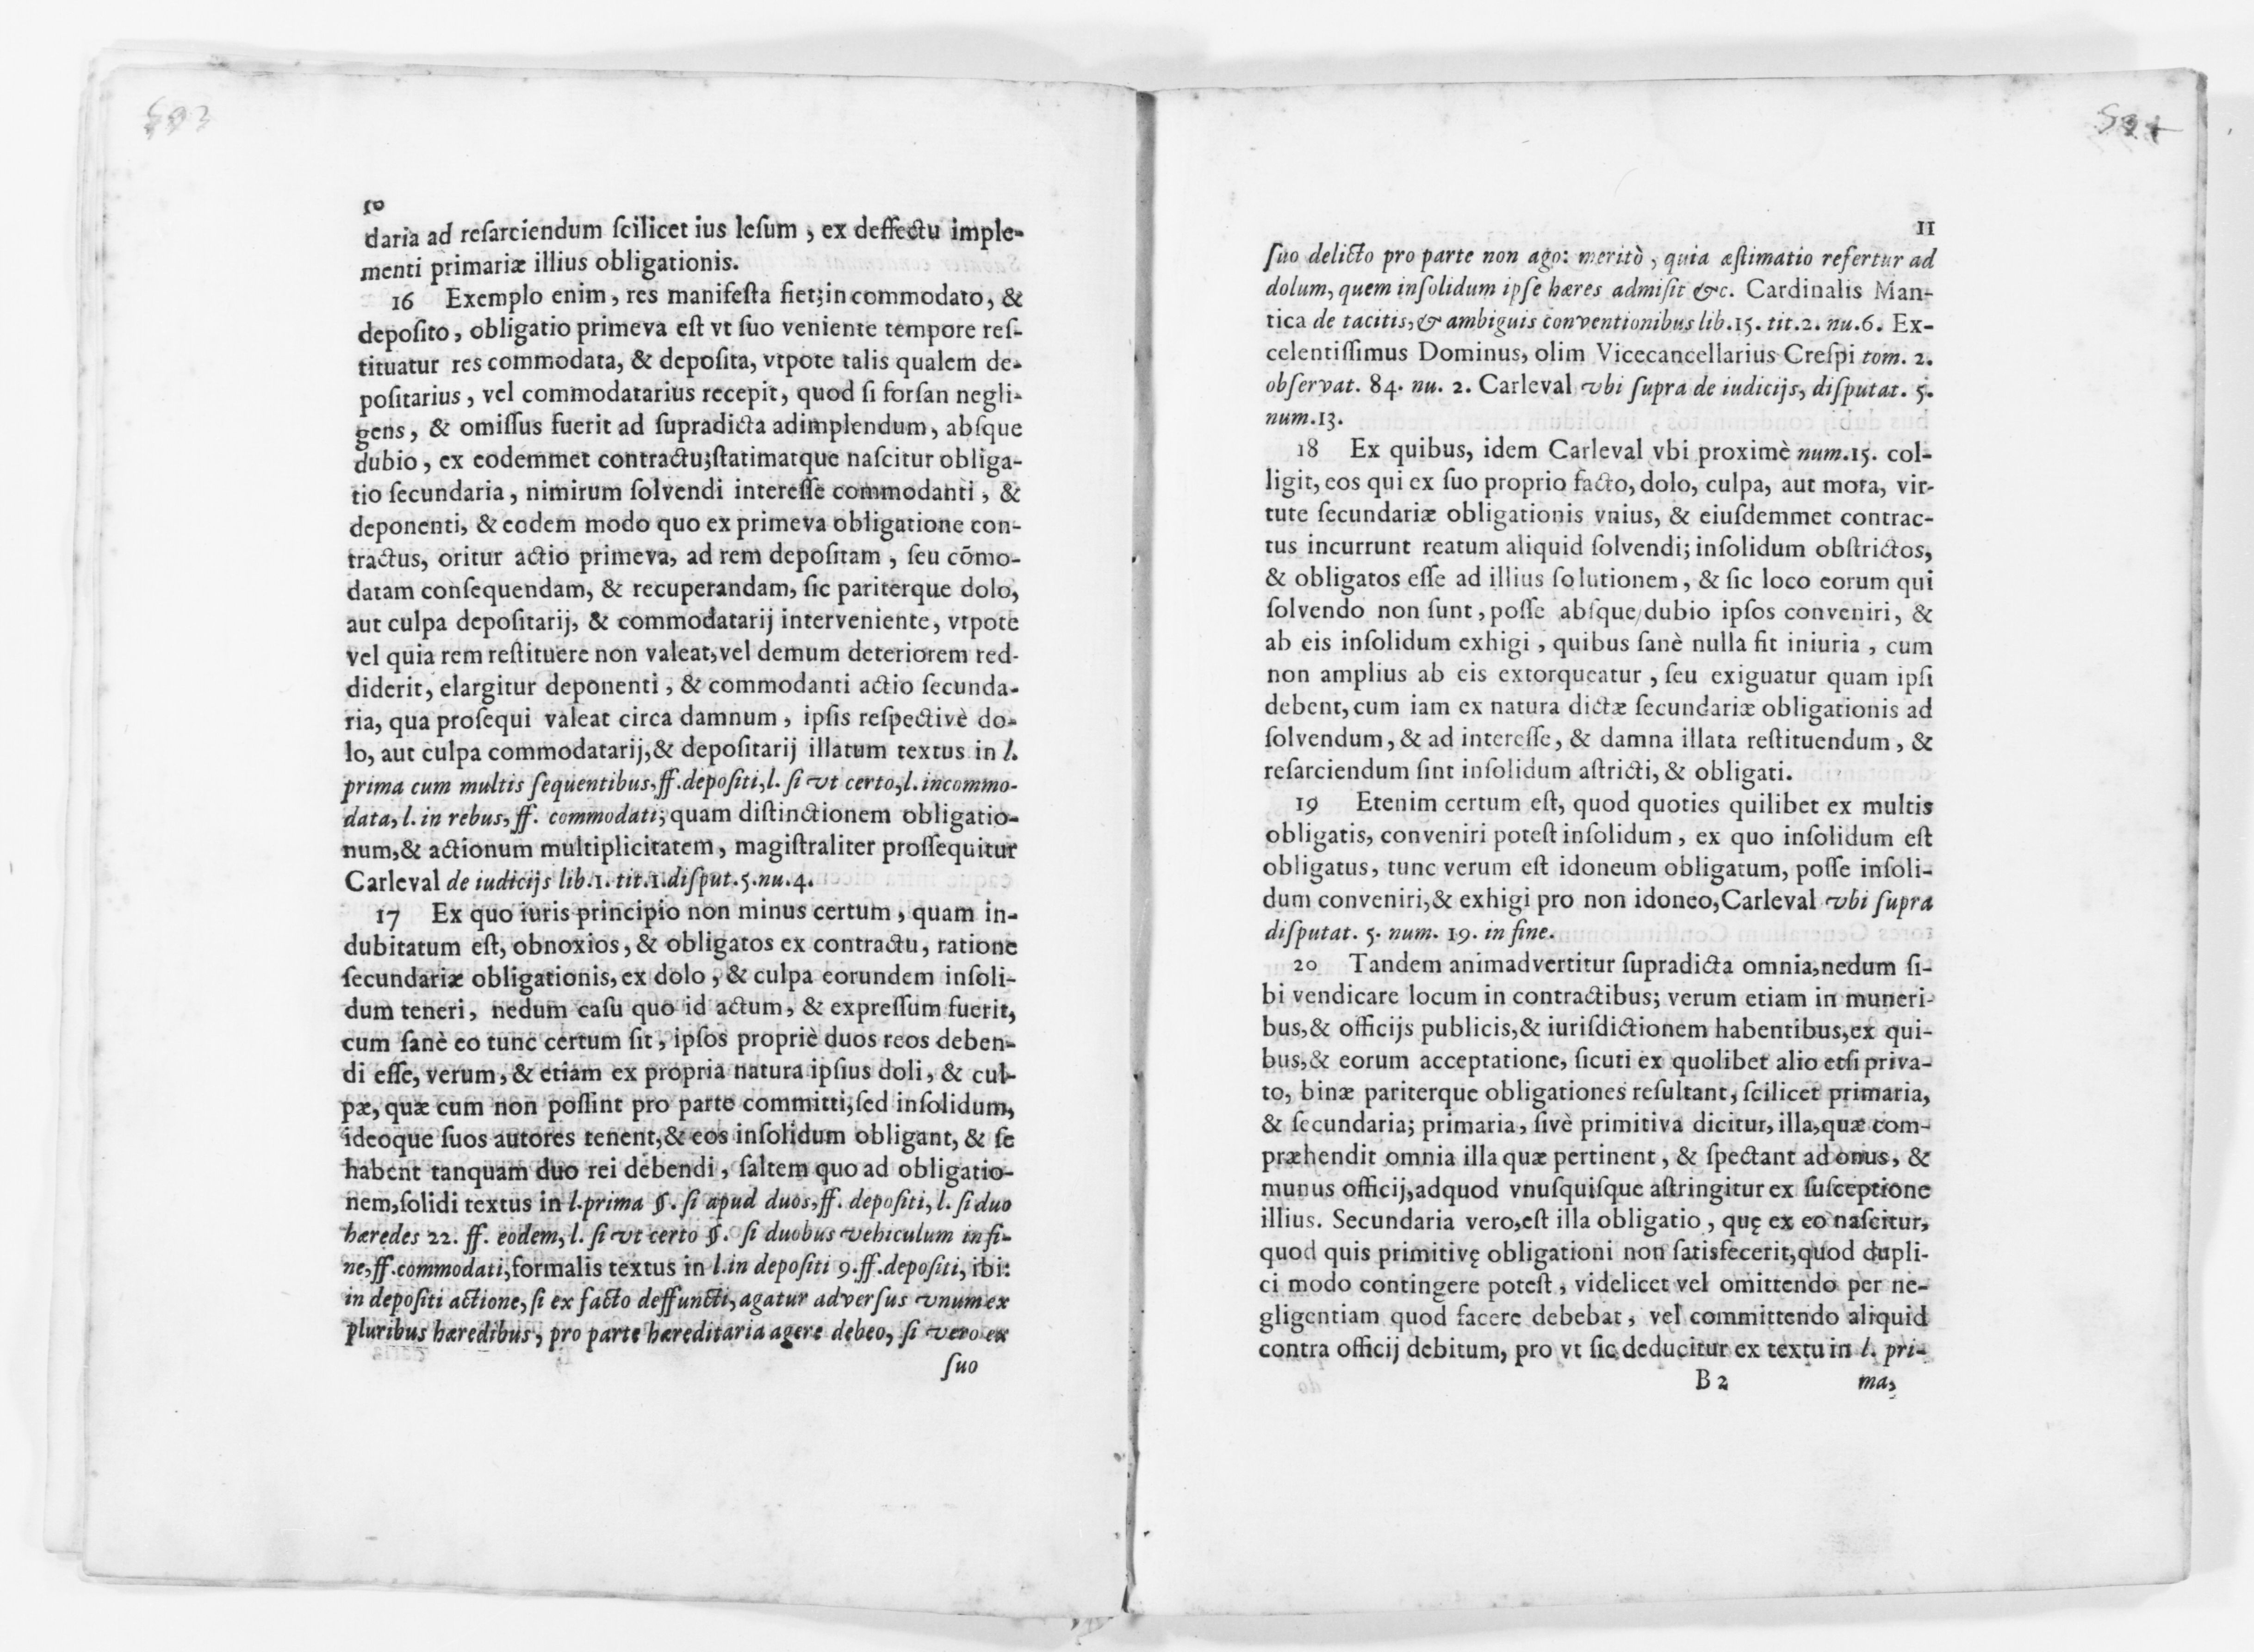 10
daria ad resarciendum scilicet ius lesum, ex deffectu imple-
menti primariæ illius obligationis.
16 Exemplo enim, res manifesta fiet; in commodato, &
deposito, obligatio primeva est vt suo veniente tempore res-
tituatur res commodata, & deposita, vtpote talis qualem de-
positarius, vel commodatarius recepit, quod si forsan negli-
gens, & omissus fuerit ad supradicta adimplendum, absque
dubio, ex eodemmet contractu; statimatque nascitur obliga-
tio secundaria, nimirum solvendi interesse commodanti, &
deponenti, & eodem modo quo ex primeva obligatione con-
tractus, oritur actio primeva, ad rem depositam, seu cõmo-
datam consequendam, & recuperandam, sic pariterque dolo,
aut culpa depositarij, & commodatarij interveniente, vtpote
vel quia rem restituere non valeat, vel demum deteriorem red-
diderit, elargitur deponenti, & commodanti actio secunda-
ria, qua prosequi valeat circa damnum, ipsis respectivè do-
lo, aut culpa commodatarij, & depositarij illatum textus in l.
prima cum multis sequentibus, ff. depositi, l. si vt certo, l. incommo-
data, l. in rebus, ff. commodati; quam distinctionem obligatio-
num, & actionum multiplicitatem, magistraliter prossequitur
Carleval de iudicijs lib. 1. tit. 1. disput. 5. nu. 4.
17 Ex quo iuris principio non minus certum, quam in-
dubitatum est, obnoxios, & obligatos ex contractu, ratione
secundariæ obligationis, ex dolo, & culpa eorundem insoli-
dum teneri, nedum casu quo id actum, & expressum fuerit,
cum sanè eo tunc certum sit, ipsos propriè duos reos deben-
di esse, verum, & etiam ex propria natura ipsius doli, & cul-
pæ, quæ cum non possint pro parte committi, sed insolidum,
ideoque suos autores tenent, & eos insolidum obligant, & se
habent tanquam duo rei debendi, saltem quo ad obligatio-
nem, solidi textus in l. prima §. si apud duos, ff. depositi, l. si duo
hæredes 22. ff. eodem, l. si vt certo §. si duobus vehiculum in fi-
ne, ff. commodati, formalis textus in l. in depositi 9. ff. depositi, ibi:
in depositi actione, si ex facto deffuncti, agatur adversus vnum ex
pluribus hæredibus, pro parte hæreditaria agere debeo, si vero ex
suo
11
suo delicto pro parte non ago: meritò, quia æstimatio refertur ad
dolum, quem insolidum ipse hæres admisit &c. Cardinalis Man-
tica de tacitis, & ambiguis conventionibus lib. 15. tit. 2. nu. 6. Ex-
celentissimus Dominus, olim Vicecancellarius Crespi tom. 2.
observat. 84. nu. 2. Carleval vbi supra de iudicijs, disputat. 5.
num. 13.
18 Ex quibus, idem Carleval vbi proximè num. 15. col-
ligit, eos qui ex suo proprio facto, dolo, culpa, aut mora, vir-
tute secundariæ obligationis vnius, & eiusdemmet contrac-
tus incurrunt reatum aliquid solvendi; insolidum obstrictos,
& obligatos esse ad illius solutionem, & sic loco eorum qui
solvendo non sunt, posse absque dubio ipsos conveniri, &
ab eis insolidum exhigi, quibus sanè nulla fit iniuria, cum
non amplius ab eis extorqueatur, seu exiguatur quam ipsi
debent, cum iam ex natura dictæ secundariæ obligationis ad
solvendum, & ad interesse, & damna illata restituendum, &
resarciendum sint insolidum astricti, & obligati.
19 Etenim certum est, quod quoties quilibet ex multis
obligatis, conveniri potest insolidum, ex quo insolidum est
obligatus, tunc verum est idoneum obligatum, posse insoli-
dum conveniri, & exhigi pro non idoneo, Carleval vbi supra
disputat. 5. num. 19. in fine.
20 Tandem animadvertitur supradicta omnia, nedum si-
bi vendicare locum in contractibus; verum etiam in muneri-
bus, & officijs publicis, & iurisdictionem habentibus, ex qui-
bus, & eorum acceptatione, sicuti ex quolibet alio etsi priva-
to, binæ pariterque obligationes resultant, scilicet primaria,
& secundaria; primaria, sivè primitiva dicitur, illa, quæ com-
præhendit omnia illa quæ pertinent, & spectant ad onus, &
munus officij, adquod vnusquisque astringitur ex susceptione
illius. Secundaria vero, est illa obligatio, quę ex eo nascitur,
quod quis primitivę obligationi non satisfecerit, quod dupli-
ci modo contingere potest, videlicet vel omittendo per ne-
gligentiam quod facere debebat, vel committendo aliquid
contra officij debitum, pro vt sic deducitur ex textu in l. pri-
B 2 ma,